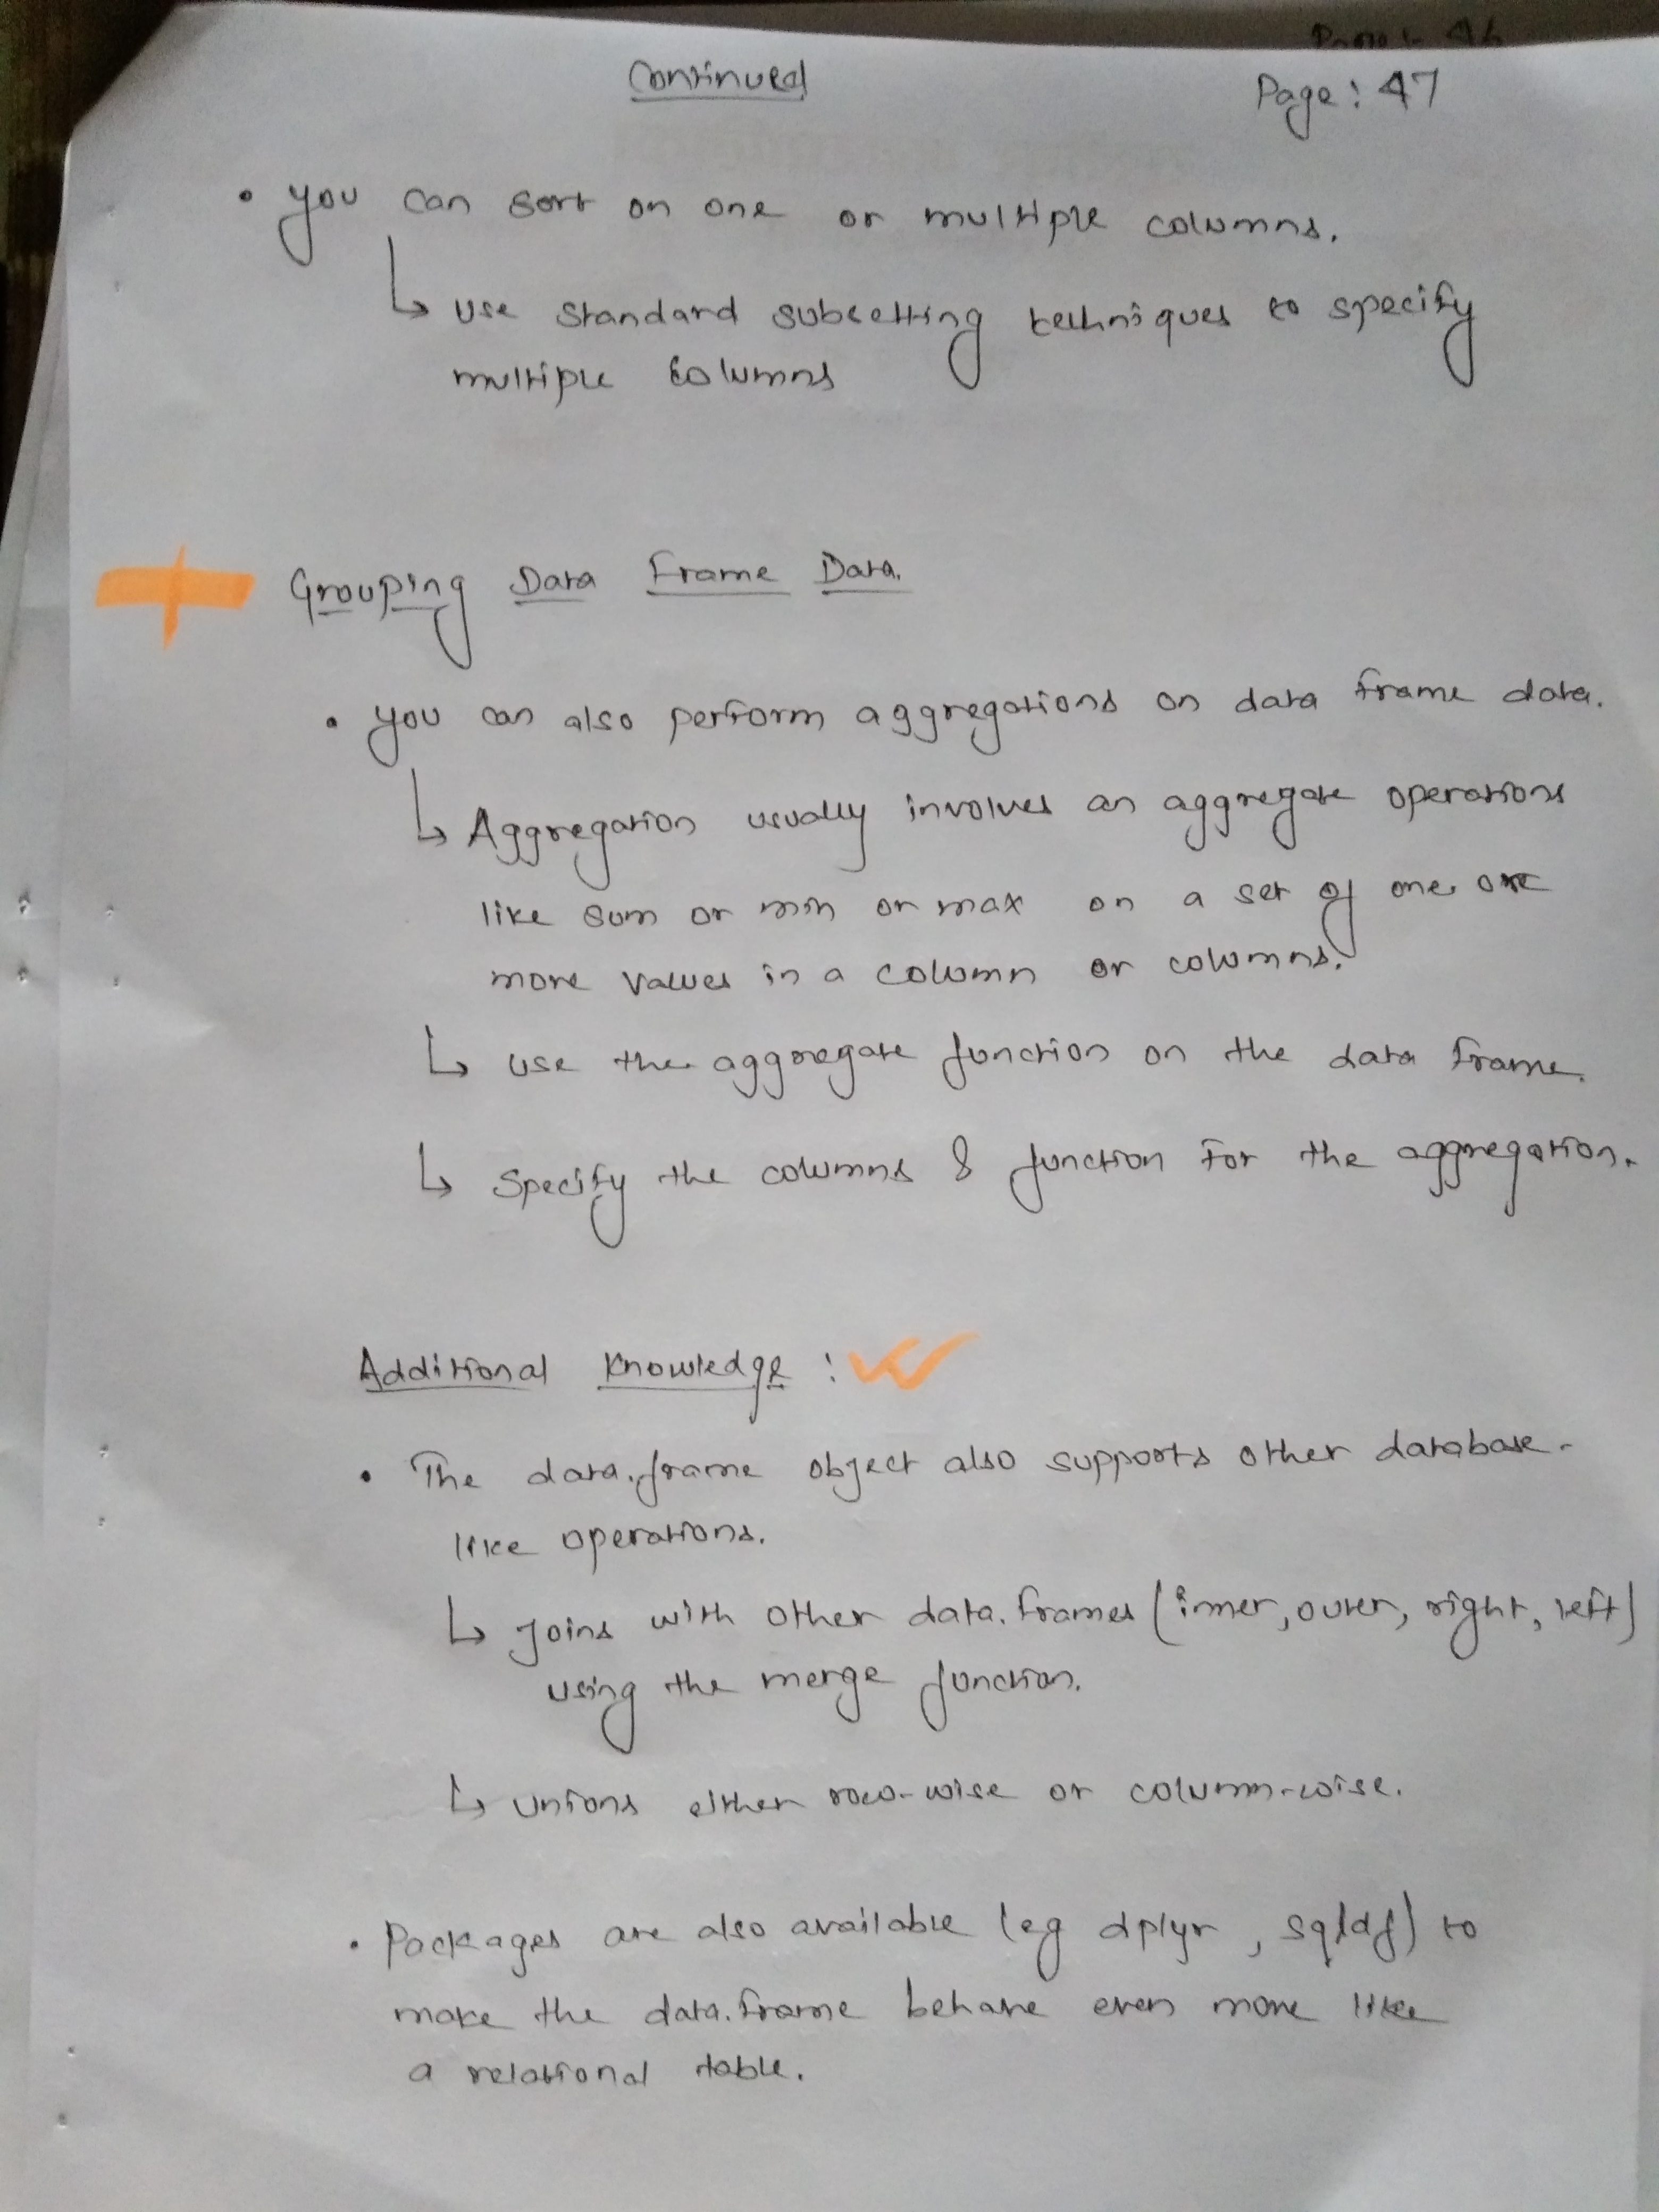 Continued
Page: 47
• You can sort on one or multiple columns.
↳ Use standard subsetting techniques to specify
multiple columns
Grouping Data Frame Data.
• You can also perform aggregations on data frame data.
↳ Aggregation usually involves an aggregate operations
like sum or min or max on a set of one or
more values in a column or columns.
↳ use the aggregate function on the data frame.
↳ Specify the columns & function for the aggregation.
Additional Knowledge :
• The data.frame object also supports other database-
like operations.
↳ Joins with other data.frames (inner, outer, right, left)
using the merge function.
↳ Unions either row-wise or column-wise.
• Packages are also available (eg dplyr, sqldf) to
make the data.frame behave even more like
a relational table.